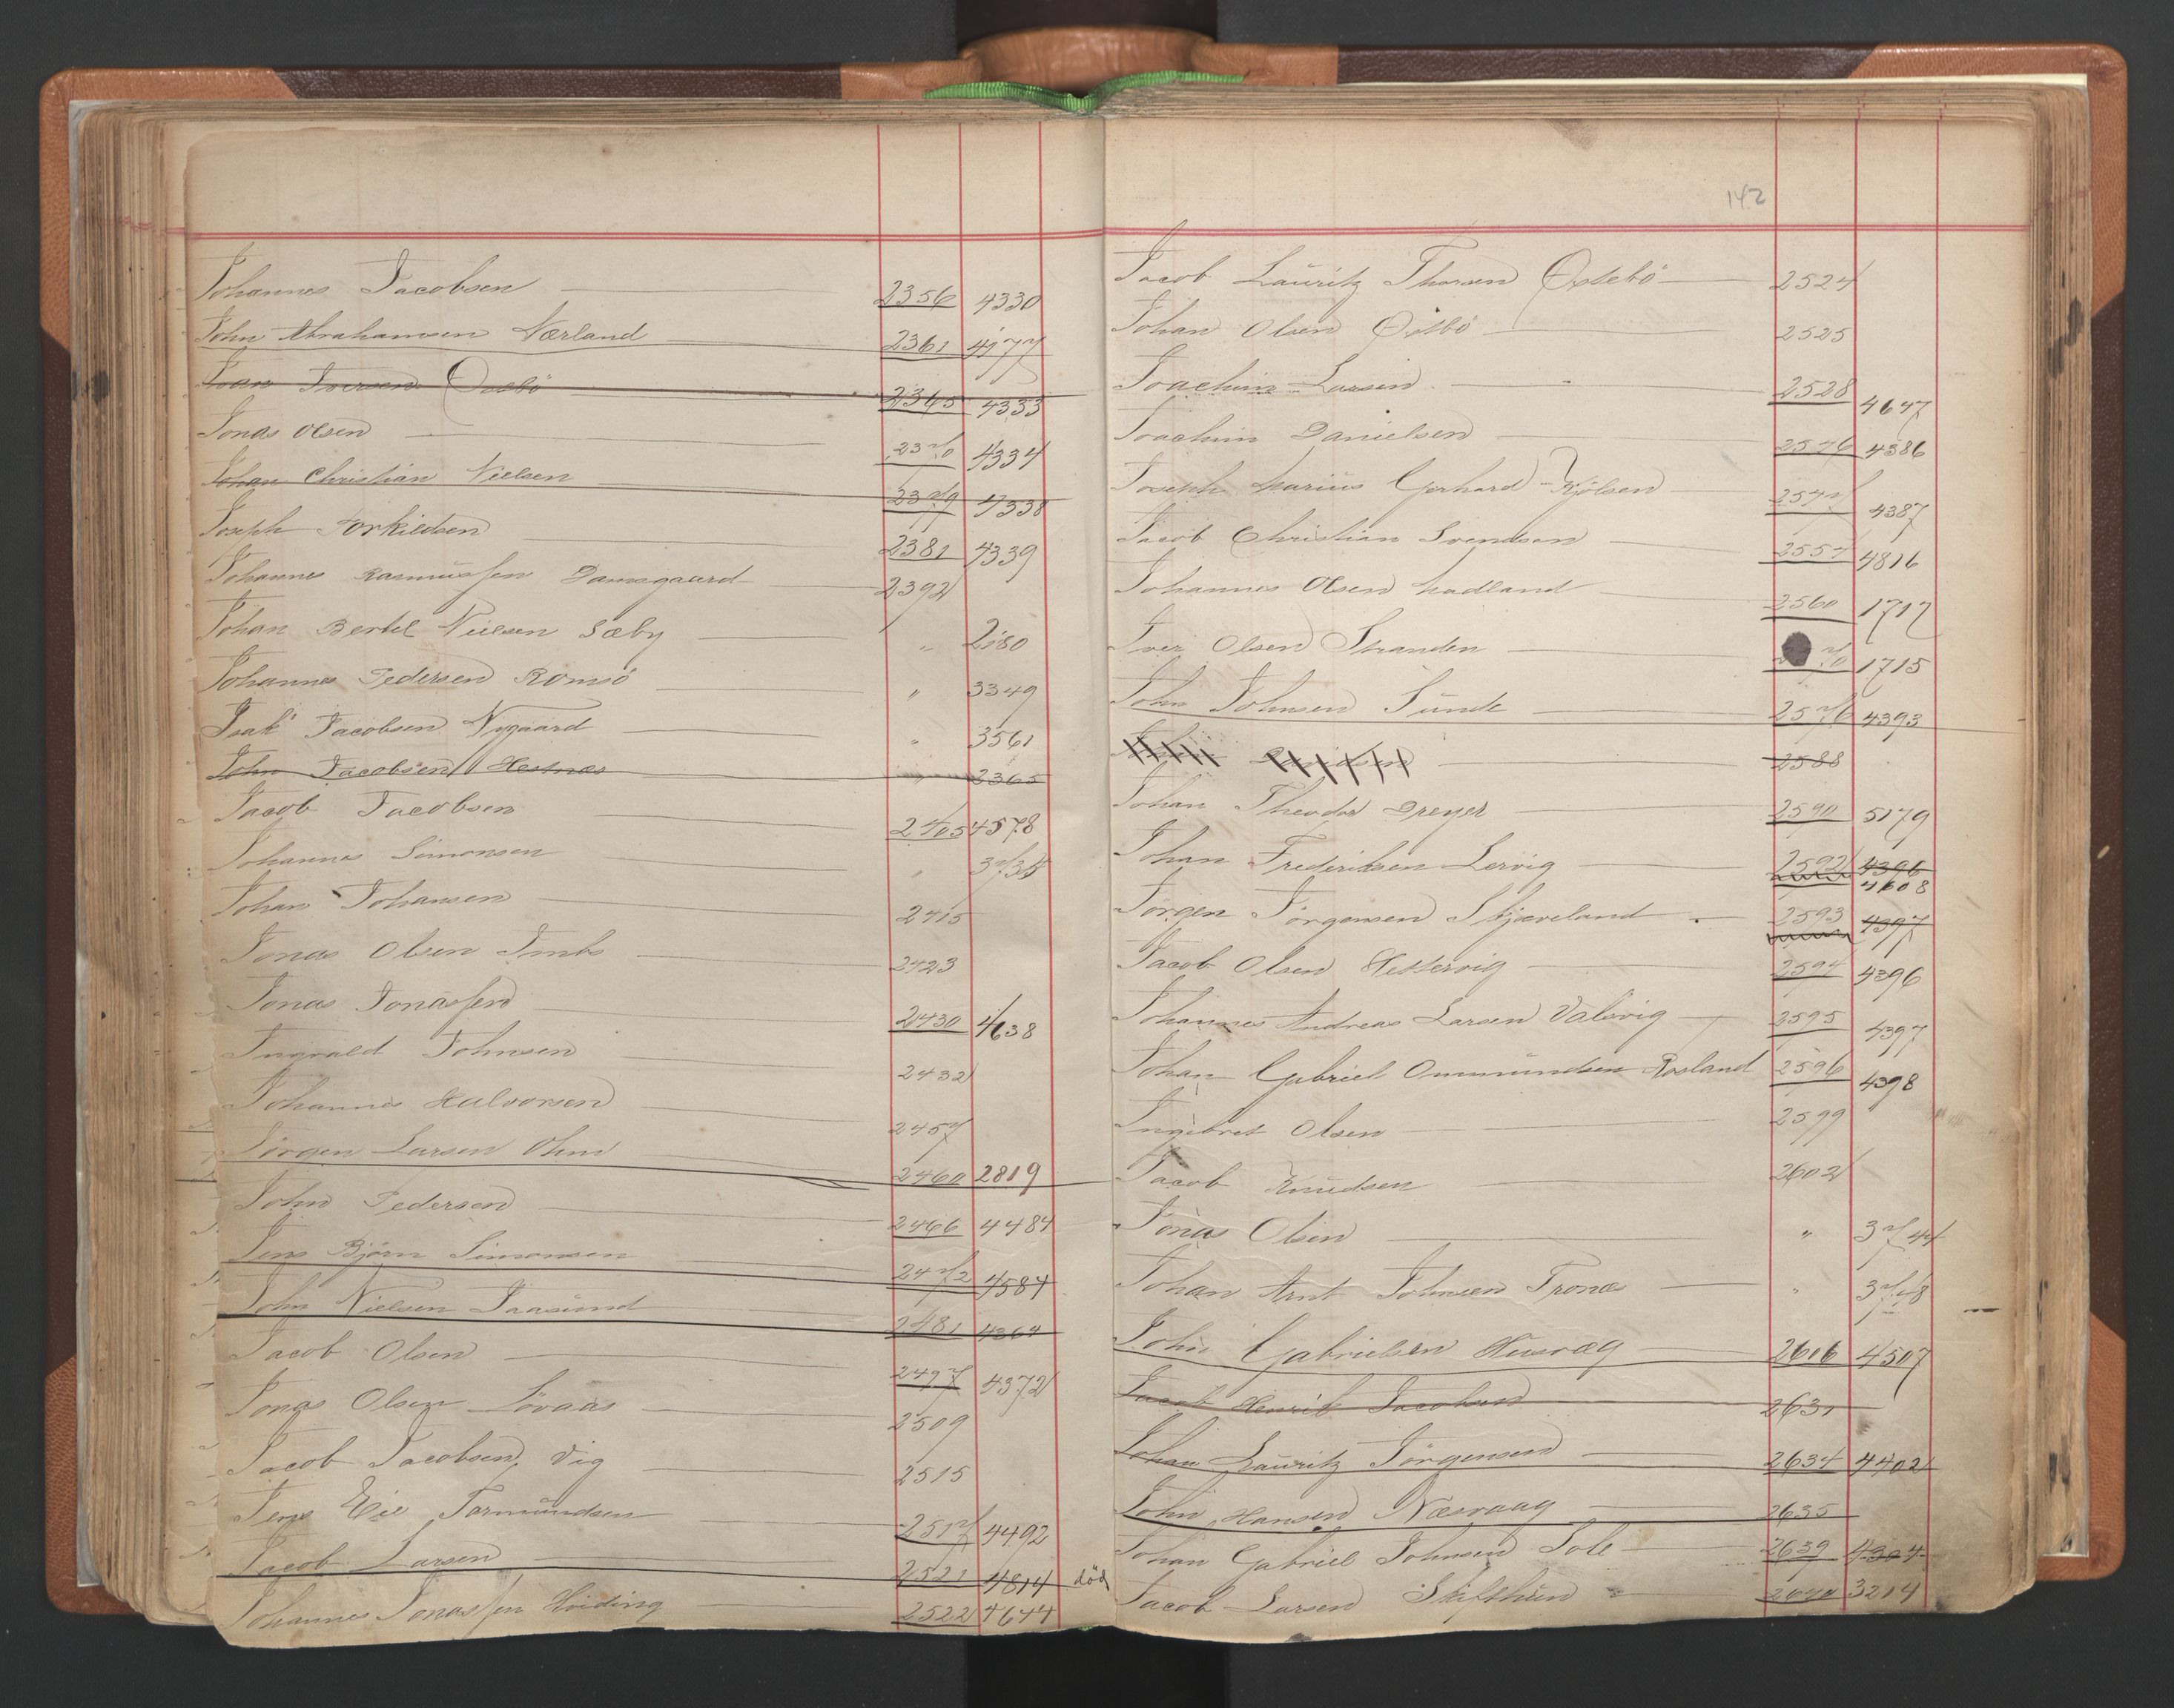 Johannes Jacobsen 2356 4330
John Abrahamsen Nærland 2361 4177
Ivar Iversen Osebö 2365 4333
Jonas Olsen 2370 4334
Johan Christian Nielsen 2379 4338
Joseph Torkildsen 2381 4339
Johannes Rasmussen Damsgaard 2392
Johan Bertel Nielsen Sæby " 2180
Johannes Pedersen Romsö " 3349
Isak Jacobsen Nygaard " 3561
John Jacobsen Hestnæs " 3365
Jacob Jacobsen 2405 4578
Johannes Simonsen "
Johan Johansen 2415
Jonas Olsen 2423
Jonas Jonassen 2430 4638
Ingvald Johnsen 2432
Johannes Halvorsen 2457
Jörgen Larsen Ohm 2460 2819
John Pedersen 2466 4484
Jens Björn Simonsen 2472 4584
John Nielsen Taasund 2481 4364
Jacob Olsen 2497 4372
Jonas Olsen Lövaas 2509
Jacob Jacobsen Vig 2515
Jens Eie Tormundsen 2517 4492
Jacob Larsen 2521 4814 död
Johannes Jonassen Hoiding 2522 4644
142
Jacob Lauritz Thorsen Østebö 2524
Johan Olsen Østbö 2525
Joachim Larsen 2528 4647
Joachim Danielsen 2546 4386
Joseph Marius Gerhard Kjölsen 2547 4387
Jacob Christian Svendsen 2557 4816
Johannes Olsen Hadland 2560 1717
Iver Olsen Stranden 1715
John Johnsen Sunde 2576 4393
2588
Johan Theodor Dreyer 2590 5179
Johan Frederiksen Lervig 2592 4396
4608
Jörgen Jörgensen Skjæveland 2593 4397
Jacob Olsen Hettervig 2594 4396
Johannes Andreas Larsen Valevig 2595 4397
Johan Gabriel Ommundsen Rosland 2596 4398
Ingebret Olsen 2599
Jacob Knudsen 2602
Jonas Olsen " 3744
Johan Arnt Johnsen Tronæs " 3748
John Gabrielsen Husvæg 2616 4507
Jacob Henrik Jacobsen 2631
Johan Lauritz Jörgensen 2634 4402
John Hansen Næsvaag 2635
Johan Gabriel Johnsen Sole 2639 4304
Jacob Larsen Skifthun 2640 3214